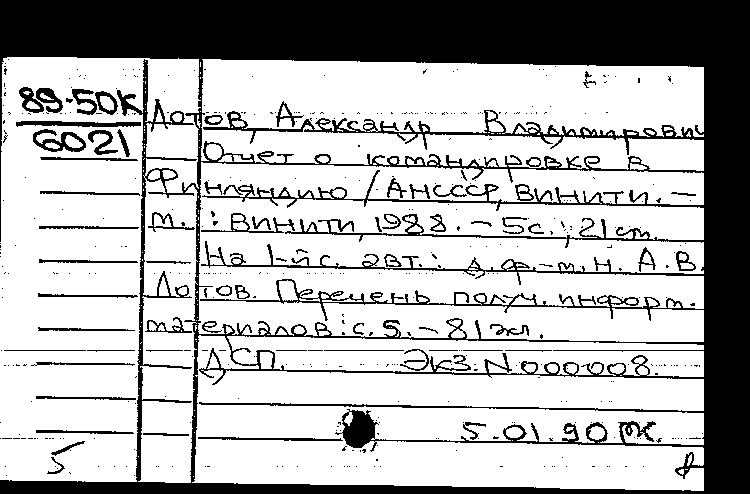 89-50К
6021
Лотов, Александр Владимирович
Отчет о командировке в
Финляндию / АН СССР, ВИНИТИ. -
м. : ВИНИТИ, 1988. - 5с.; 21 cm.
На 1-й с. авт.: д.ф.-м.н. А.В.
Лотов. Перечень получ. информ.
материалов: с. 5. - 81 экз.
ДСП. Экз. N 000008.
5.01.90
5